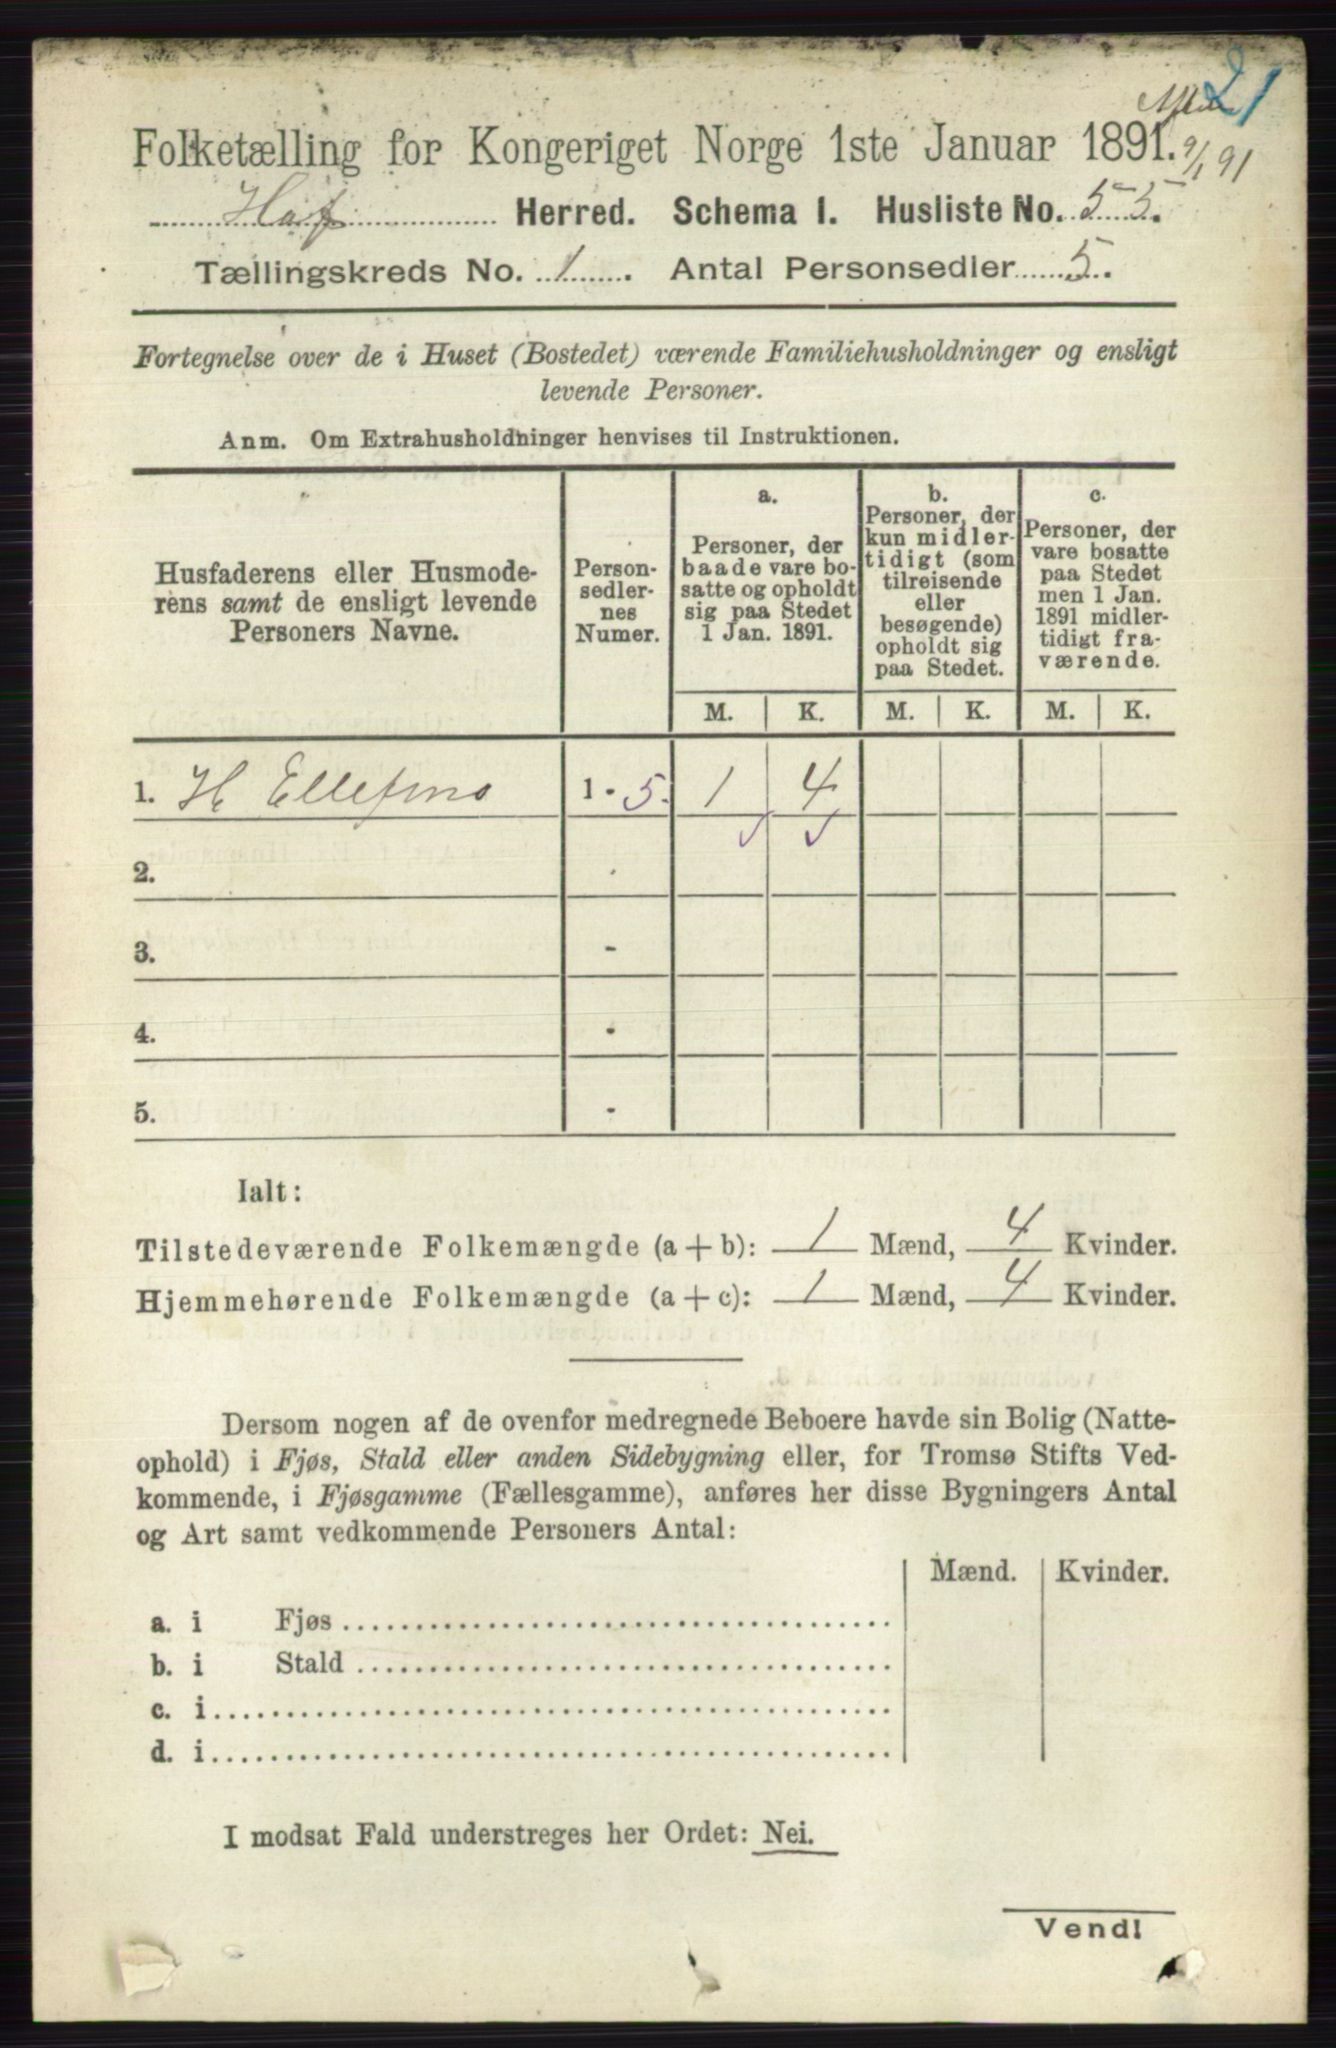 21
9/1 91
Folketælling for Kongeriget Norge 1ste Januar 1891.
Haf Herred. Schema 1. Husliste No. 55.
Tællingskreds No. 1. Antal Personsedler 5.
Fortegnelse over de i Huset (Bostedet) værende Familiehusholdninger og ensligt
levende Personer.
Anm. Om Extrahusholdninger henvises til Instruktionen.
Husfaderens eller Husmode-
rens samt de ensligt levende
Personers Navne.
Person-
sedler-
nes
Numer.
a.
Personer, der
baade vare bo-
satte og opholdt
sig paa Stedet
1 Jan. 1891.
b.
Personer, der
kun midler-
tidigt (som
tilreisende
eller
besøgende)
opholdt sig
paa Stedet.
c.
Personer, der
vare bosatte
paa Stedet
men 1 Jan.
1891 midler-
tidigt fra-
værende.
M. K. M. K. M. K.
1. H 1 - 5. 1 4
2.
3. -
4. -
5. -
Ialt:
Tilstedeværende Folkemængde (a + b): 1 Mænd, 4 Kvinder.
Hjemmehørende Folkemængde (a + c): 1 Mænd, 4 Kvinder.
Dersom nogen af de ovenfor medregnede Beboere havde sin Bolig (Natte-
ophold) i Fjøs, Stald eller anden Sidebygning eller, for Tromsø Stifts Ved-
kommende, i Fjøsgamme (Fællesgamme), anføres her disse Bygningers Antal
og Art samt vedkommende Personers Antal:
Mænd. Kvinder.
a. i Fjøs
b. i Stald
c. i
d. i
I modsat Fald understreges her Ordet: Nei.
Vend!